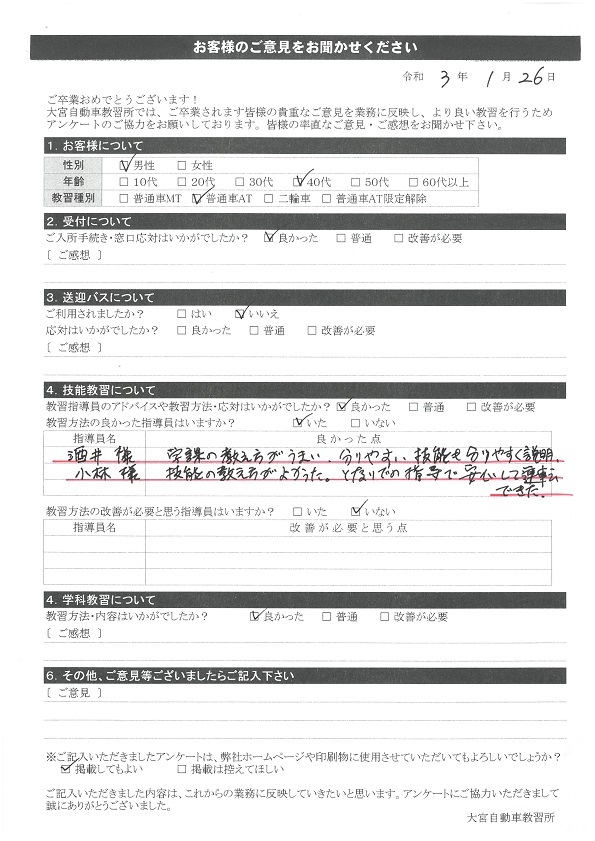 お客様のご意見をお聞かせください
令和 3 年 1 月 26 日
ご卒業おめでとうございます！
大宮自動車教習所では、ご卒業されます皆様の貴重なご意見を業務に反映し、より良い教習を行うため
アンケートのご協力をお願いしております。皆様の率直なご意見・ご感想をお聞かせ下さい。
1. お客様について
性別 ☑男性 □女性
年齢 □10代 □20代 □30代 ☑40代 □50代 □60代以上
教習種別 □普通車MT ☑普通車AT □二輪車 □普通車AT限定解除
2. 受付について
ご入所手続き・窓口応対はいかがでしたか？ ☑良かった □普通 □改善が必要
[ ご感想 ]
3. 送迎バスについて
ご利用されましたか？ □はい ☑いいえ
応対はいかがでしたか？ □良かった □普通 □改善が必要
[ ご感想 ]
4. 技能教習について
教習指導員のアドバイスや教習方法・応対はいかがでしたか？ ☑良かった □普通 □改善が必要
教習方法の良かった指導員はいますか？ ☑いた □いない
指導員名 良かった点
酒井 様 学課の教え方がうまい、分りやすい 技能も分りやすく説明
小林 様 技能の教え方がよかった。となりでの指導で安心して運転
できた。
教習方法の改善が必要と思う指導員はいますか？ □いた ☑いない
指導員名 改善が必要と思う点
4. 学科教習について
教習方法・内容はいかがでしたか？ ☑良かった □普通 □改善が必要
[ ご感想 ]
6. その他、ご意見等ございましたらご記入下さい
[ ご意見 ]
※ご記入いただきましたアンケートは、弊社ホームページや印刷物に使用させていただいてもよろしいでしょうか？
☑掲載してもよい □掲載は控えてほしい
ご記入いただきました内容は、これからの業務に反映していきたいと思います。アンケートにご協力いただきまして
誠にありがとうございました。
大宮自動車教習所